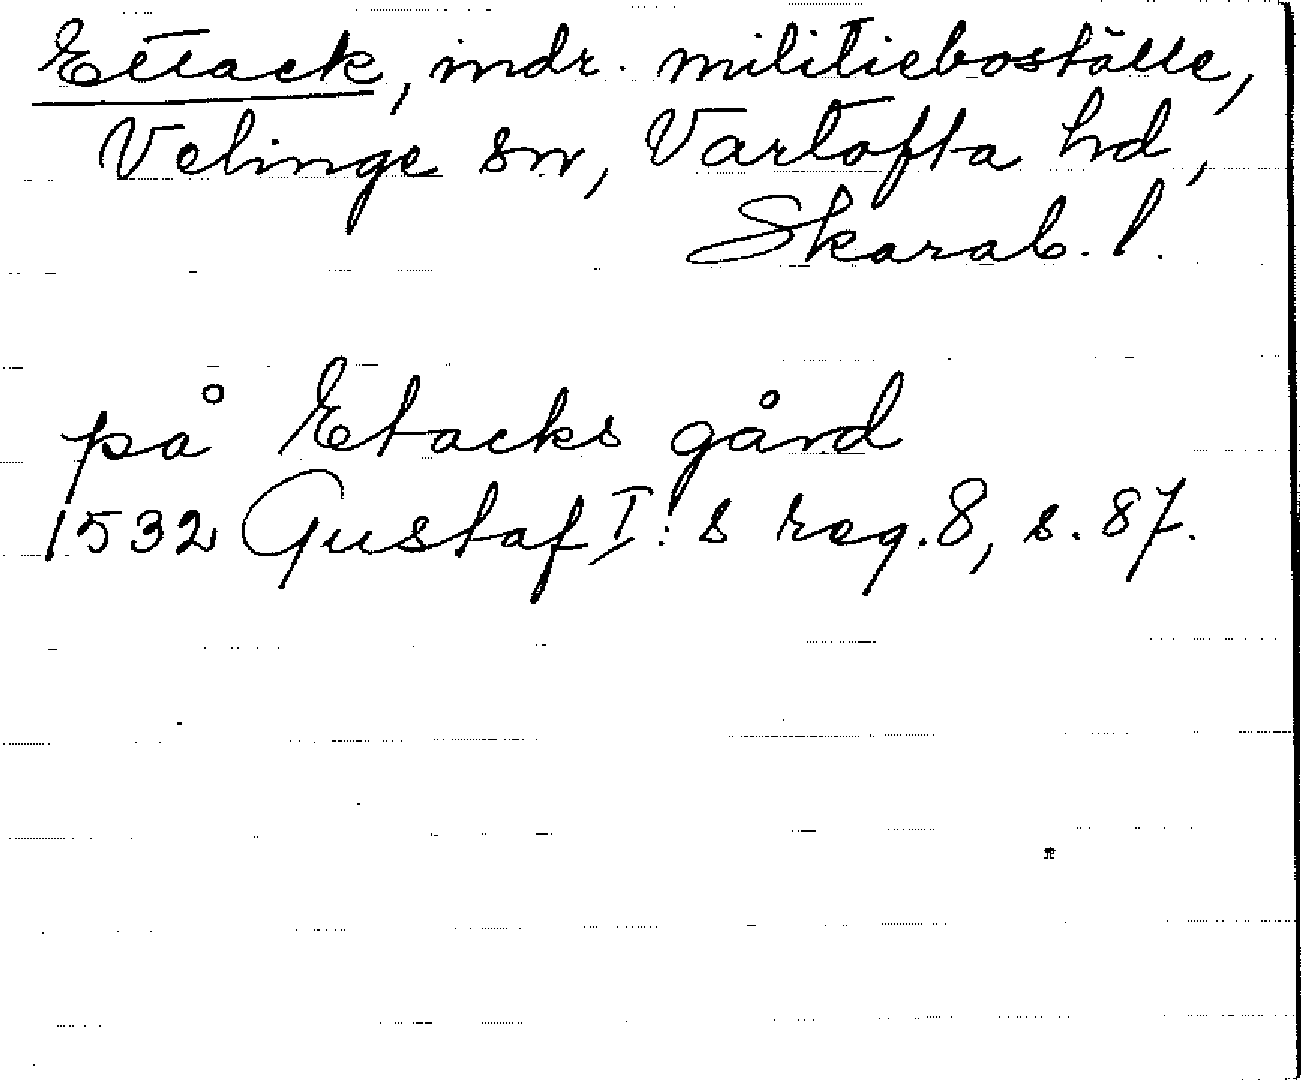 Ettack, indr. militieboställe,
Velinge sn, Vartofta hd,
Skarab. l.
på Etacks gård
1532 Gustaf I:s reg. 8, s. 87.